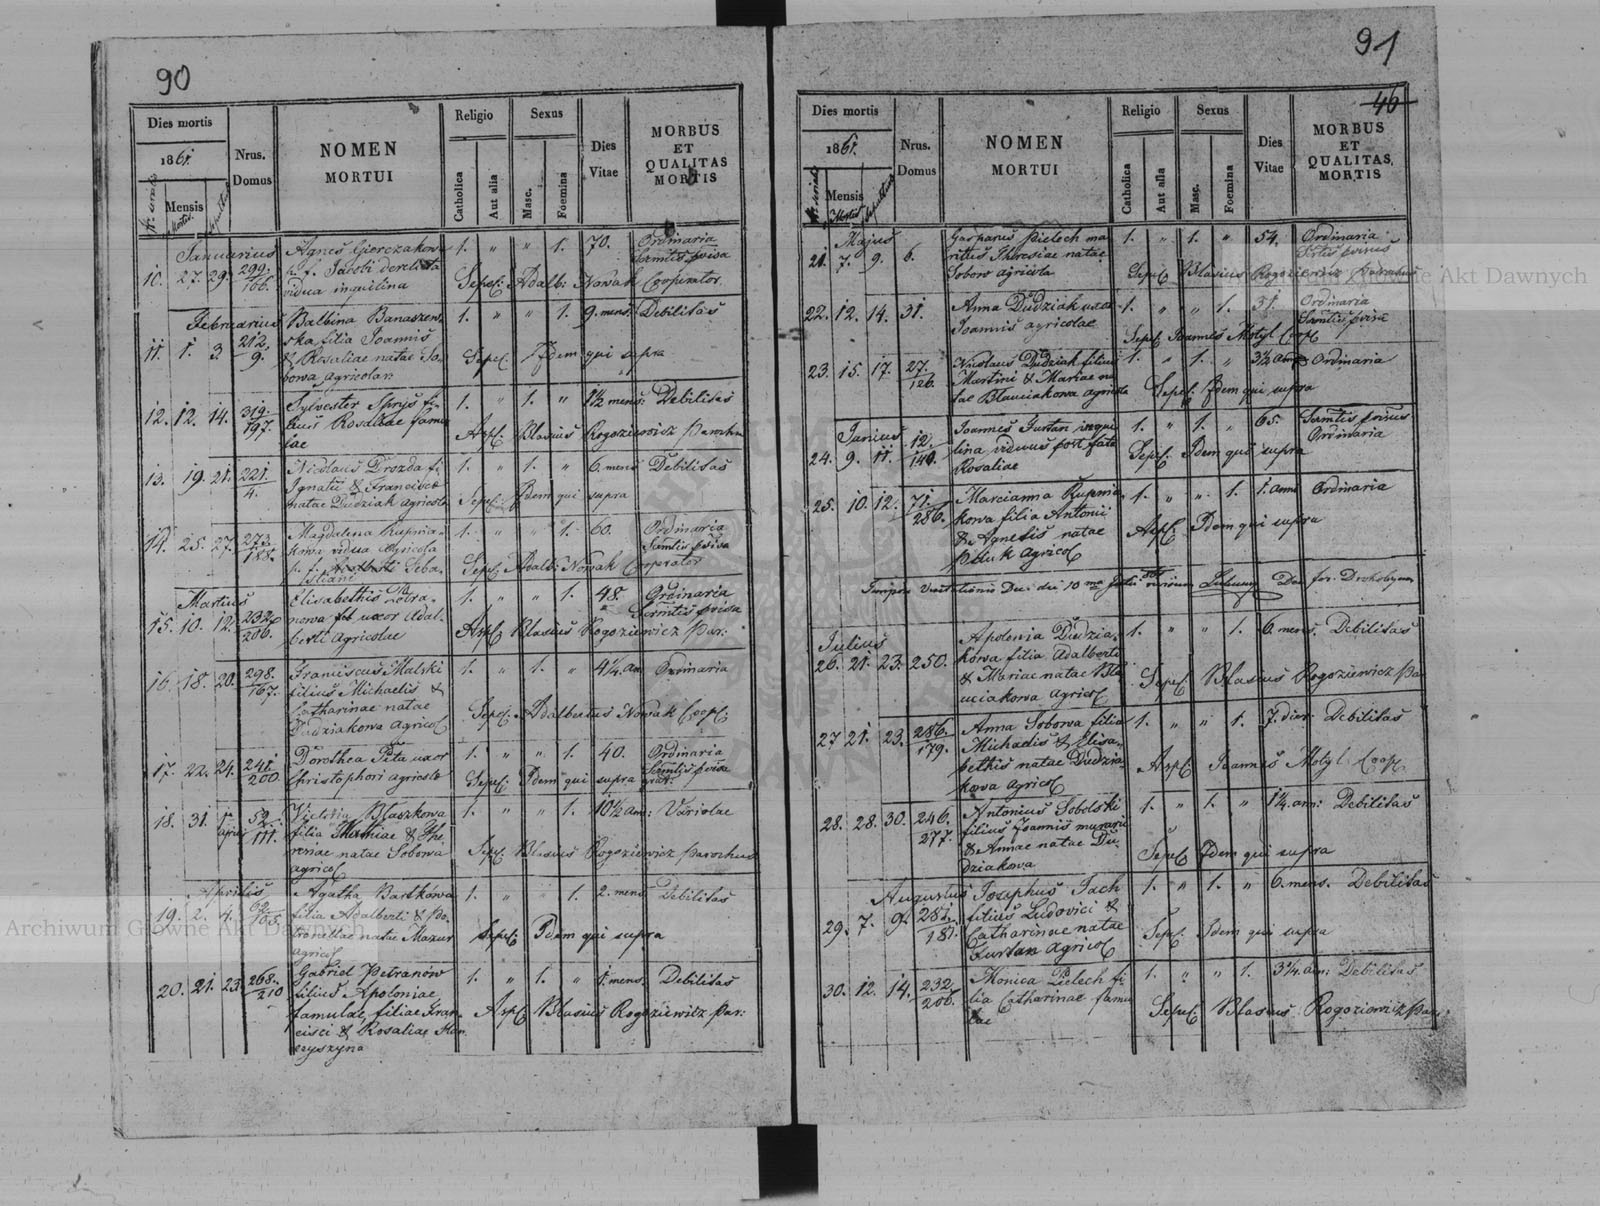 90
Dies mortis
1861.
Mensis
Mortis
Nrus.
Domus
NOMEN
MORTUI
Religio
Catholica
Aut alia
Sexus
Masc.
Foemina
Dies
Vitae
MORBUS
ET
QUALITAS
MORTIS
Januarius
10. 27. 29. 299./166.
Agnes
p. f. Jacobi derelicta
vidua inquilina
1. " " 1. 70. Ordinaria
Sepel: Adalb: Nowak Cooperator
Februarius
11. 1. 3. 212./9.
Balbina Banaszew
ska filia Joannis
& Rosaliae natae So
bowa agricolar:
1. " " 1. 9. mens: Debilitas
Sepel. Idem qui supra
12. 12. 14. 319./197.
Sylvester Spryś fi
lius Rosaliae famu
lae
1. " 1. " 1½ mens: Debilitas
Aspl: Blasius Rogoziewicz Parochus
13. 19. 21. 221./4.
Nicolaus Drozda fi.
Ignatii & Franciscae
natae Dudziak agricola
1. " 1. " 6. mens Debilitas
Sepel: Idem qui supra
14. 25. 27. 273./188.
Magdalena Kupnia-
kowa vidua agricola
p. f. Seba-
stiani
1. " " 1. 60. Ordinaria
Sepel. Adalb: Nowak Cooperator
Martius
15. 10. 12. 232./206.
Elisabethis Petra-
nowa uxor Adal-
berti agricolae
1. " " 1. 48. Ordinaria
Aspl Blasius Rogoziewicz Par:
16. 18. 20. 298./167.
Franciscus Malski
filius Michaelis &
Catharinae natae
Dudziakowa agricol
1. " 1. " 4¼. an Ordinaria
Sepel. Adalbertus Nowak Coopl.
17. 22. 24. 241./200.
Dorothea Pęta uxor
Christophori agricola
1. " " 1. 40. Ordinaria
Sepel. Idem qui supra
18. 31. 1. aprilis 52./111.
Blaszkowa
filia & The
resiae natae Sobowa
agricol
1. " " 1. 10½ an: Variolae
Sepel Blasius Rogoziewicz Parochus
Aprilis
19. 2. 4.
Agatha Bartkowa
filia Adalberti & Pe-
tronellae natae Mazur
agricol
1. " " 1. 2. mens Debilitas
Sepel: Idem qui supra
20. 21. 23. 268./210
Gabriel Petranów
filius Apoloniae
famulae, filiae Fran
cisci & Rosaliae
1. " 1. " 1. mens. Debilitas
Aspl Blasius Rogoziewicz Par:
91
46
Dies mortis
1861.
Mensis
Mortis
Nrus.
Domus
NOMEN
MORTUI
Religio
Catholica
Aut alia
Sexus
Masc.
Foemina
Dies
Vitae
MORBUS
ET
QUALITAS,
MORTIS
Majus
21. 7. 9. 6.
Gasparus Pielech ma
ritus Theresiae natae
Sobow agricola
1. " 1. " 54. Ordinaria
Sepel Blasius Rogoziewicz Parochus
22. 12. 14. 31.
Anna Dudziak uxor
Joannis agricolae
1. " " 1. 31. Ordinaria
Sepel Joannes Motyl Coopl
23. 15. 17. 27./126.
Nicolaus Dudziak filius
Martini & Mariae na
tae Blauciakowa agricola
1. " 1. " 3½ ann Ordinaria
Sepel Idem qui supra
Junius
24. 9. 11. 12./140.
Joannes Furtan inqui
lina viduus post fata
Rosaliae
1. " 1. " 65.
Ordinaria
Sepel. Idem qui supra
25. 10. 12. 71./286.
Marcianna Kupnia
kowa filia Antonii
& Agnetis natae
agricol
1. " " 1. 1. anni Ordinaria
Aspl Idem qui supra
Tempore Visitationis
Julius
26. 21. 23. 250.
Apolonia Dudzia-
kówa filia Adalberti
& Mariae natae Bla
uciakowa agricol
1. " " 1. 6. mens. Debilitas
Sepel. Blasius Rogoziewicz Par
27 21. 23. 286./179.
Anna Sobowa filia
Michaelis & Elisa-
bethis natae Dudzia-
kowa agricol
1. " " 1. 7. dier: Debilitas
Aspl. Joannes Motyl Coopl
28. 28. 30. 246./277.
Antonius Sobolski
filius Joannis murarii
& Annae natae Du-
dziakowa
1. " 1. " 1¼. ann: Debilitas
Sepel Idem qui supra
Augustus
29. 7. 9. 281./181.
Josephus Jach
filius Ludovici &
Catharinae natae
Furtan agricol
1. " 1. " 6. mens. Debilitas
Sepel. Idem qui supra
30. 12. 14. 232./206.
Monica Pielech fi-
lia Catharinae famu
lae
1. " " 1. 3¼. an: Debilitas
Sepel. Blasius Rogoziewicz Par:
Archiwum Główne Akt Dawnych
Archiwum Główne Akt Dawnych